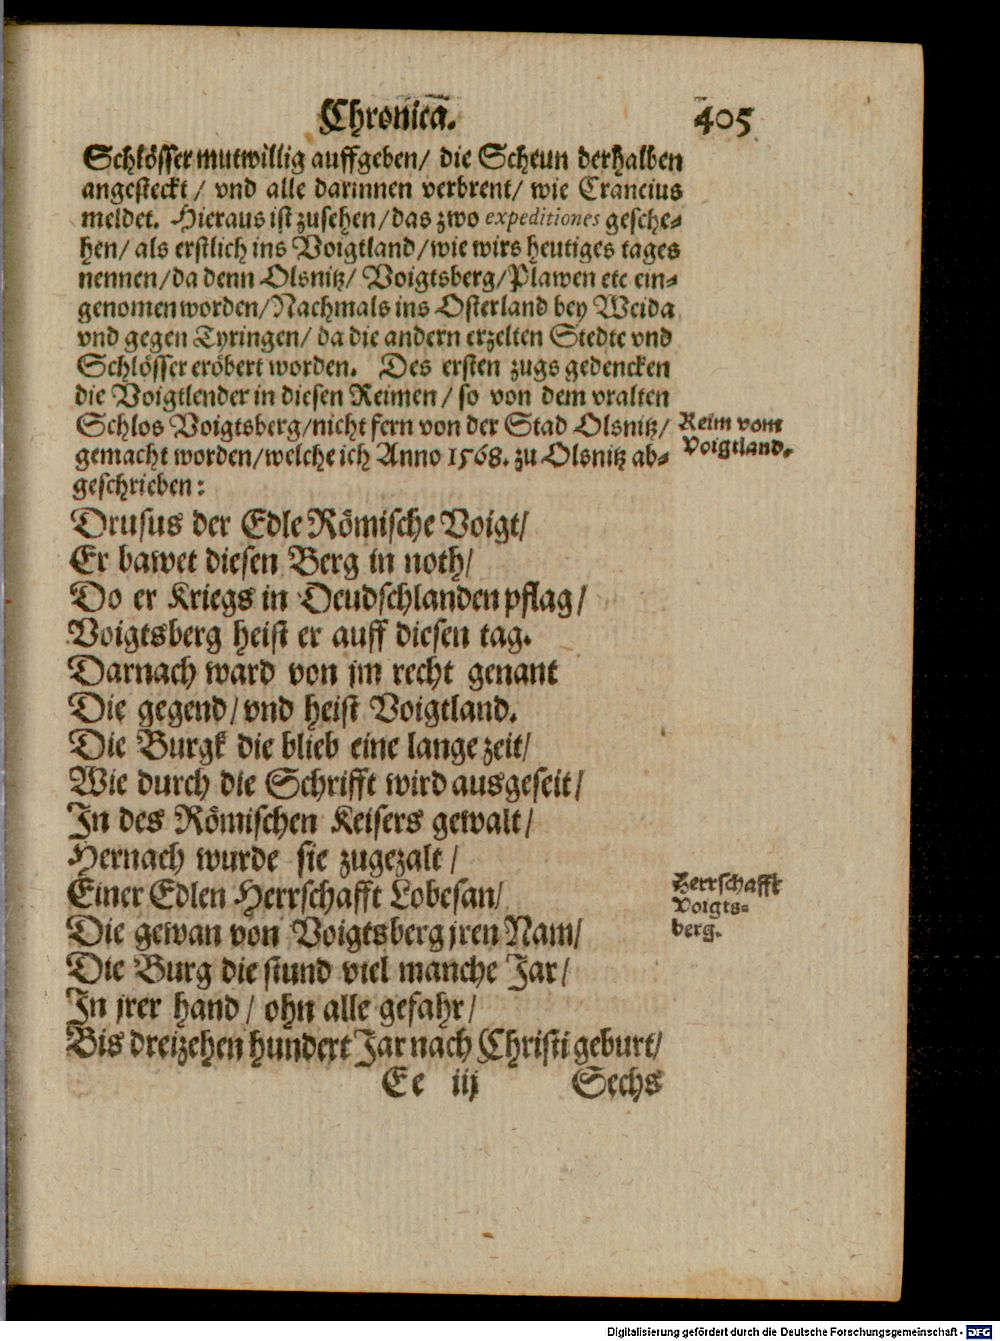 Chronica.
405
Schlösser mutwillig auffgeben/ die Scheun derhalben
angesteckt/ vnd alle darinnen verbrent/ wie Crancius
meldet. Hieraus ist zusehen/das zwo expeditiones gesche-
hen/ als erstlich ins Voigtland/wie wirs heutiges tages
nennen/da denn Olsnitz/ Voigtsberg/Plawen etc ein-
genomen worden/Nachmals ins Osterland bey Weida
vnd gegen Tyringen/ da die andern erzelten Stedte vnd
Schlösser eröbert worden. Des ersten zugs gedencken
die Voigtlender in diesen Reimen/ so von dem vralten
Schlos Voigtsberg/nicht fern von der Stad Olsnitz/
Reim vom
gemacht worden/welche ich Anno 1568. zu Olsnitz ab-
Voigtland.
geschrieben:
Drusus der Edle Römische Voigt/
Er bawet diesen Berg in noth/
Do er Kriegs in Deudschlanden pflag/
Voigtsberg heist er auff diesen tag.
Darnach ward von jm recht genant
Die gegend/vnd heist Voigtland.
Die Burgk die blieb eine lange zeit/
Wie durch die Schrifft wird ausgeseit/
In des Römischen Keisers gewalt/
Hernach wurde sie zugezalt/
Einer Edlen Herrschafft Lobesan/
Herrschafft
Voigts-
berg.
Die gewan von Voigtsberg jren Nam/
Die Burg die stund viel manche Jar/
In jrer hand/ ohn alle gefahr/
Bis dreizehen hundert Jar nach Christi geburt/
Ee iij
Sechs
Digitalisierung gefördert durch die Deutsche Forschungsgemeinschaft - DFG